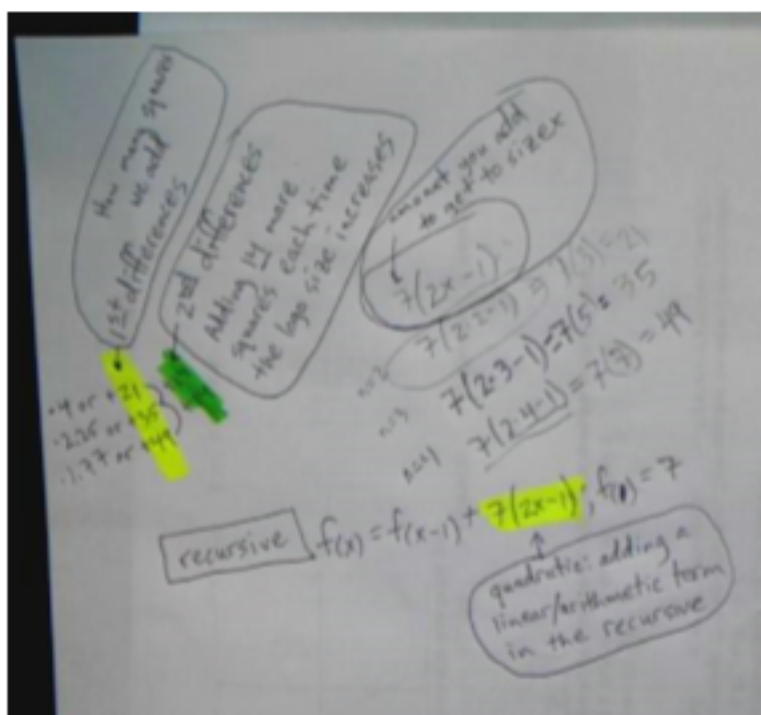 How many squares
we add
1st differences
2nd differences
Adding 14 more
squares each time
the logo size increases
amount you add
to get to size x
7(2x-1)
n=2 7(2·2-1) 7(3)=21
n=3 7(2·3-1)=7(5)=35
n=4 7(2·4-1)=7(7)=49
·4 or +21
·2.25 or +35
·1.77 or +49
recursive f(x)=f(x-1)+7(2x-1); f(1)=7
quadratic: adding a
linear/arithmetic term
in the recursive